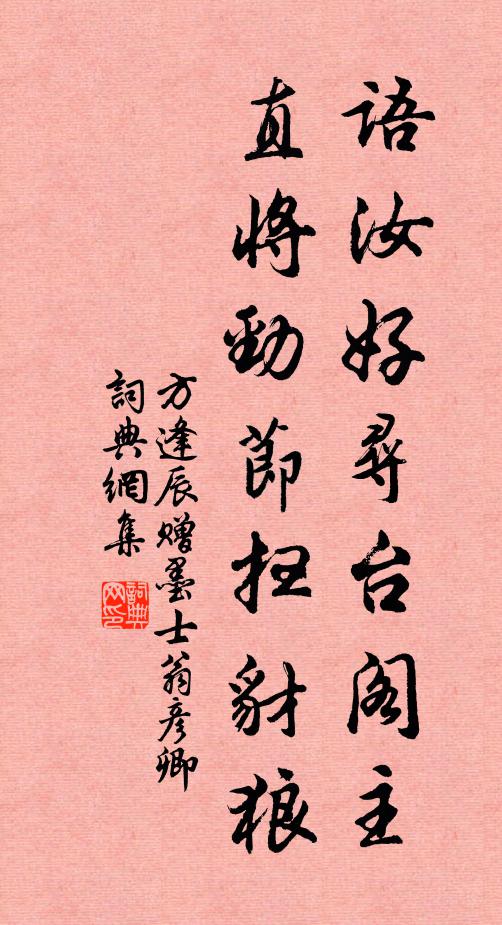 語汝好尋台阁主
直將勁節扫豺狼
方逢辰赠墨士翁彦卿
詞典網集
詞典网印